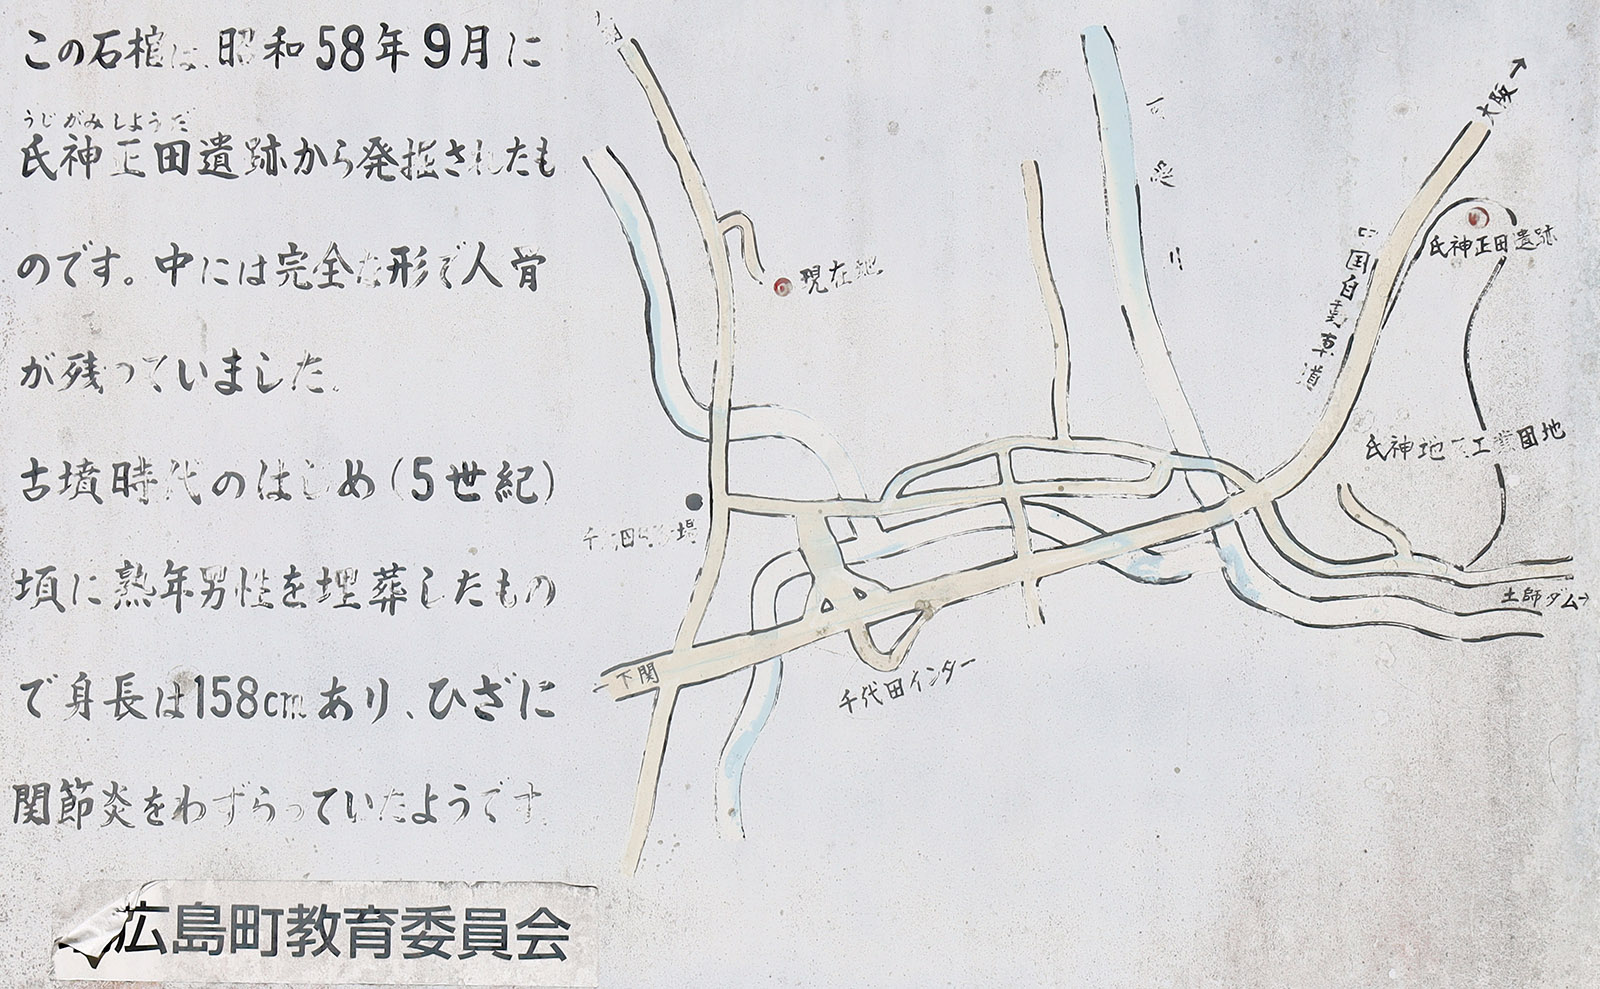 この石棺は、昭和58年9月に
うじがみしようだ
氏神正田遺跡から発掘されたも
のです。中には完全な形で人骨
が残っていました。
古墳時代のはじめ(5世紀)
頃に熟年男性を埋葬したもの
で身長は158cmあり、ひざに
関節炎をわずらっていたようです
広島町教育委員会
現在地
可愛川
中国自動車道
大阪→
氏神正田遺跡
工業団地
土師ダム→
←下関
千代田インター